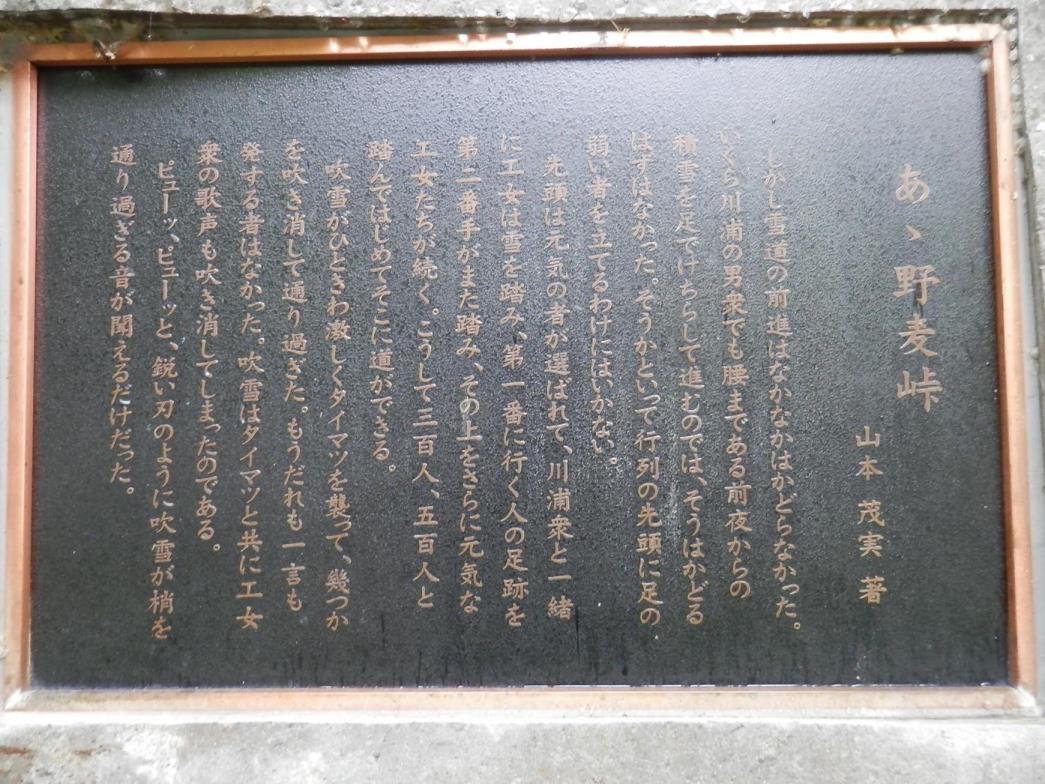 あゝ野麦峠
山本茂実 著
しかし雪道の前進はなかなかはかどらなかった。
いくら川浦の男衆でも腰まである前夜からの
積雪を足でけちらして進むのでは、そうはかどる
はずはなかった。そうかといって行列の先頭に足の
弱い者を立てるわけにはいかない。
先頭は元気の者が選ばれて、川浦衆と一緒
に工女は雪を踏み、第一番に行く人の足跡を
第二番手がまた踏み、その上をさらに元気な
工女たちが続く。こうして三百人、五百人と
踏んではじめてそこに道ができる。
吹雪がひときわ激しくタイマツを襲って、幾つか
を吹き消して通り過ぎた。もうだれも一言も
発する者はなかった。吹雪はタイマツと共に工女
衆の歌声も吹き消してしまったのである。
ピューッ、ピューッと、鋭い刃のように吹雪が梢を
通り過ぎる音が聞えるだけだった。